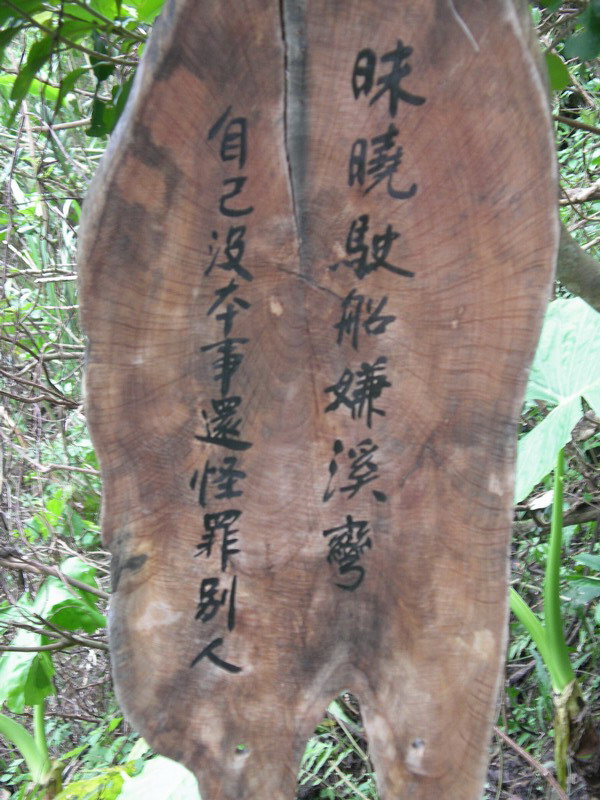 昧曉駛船嫌溪彎
自己沒本事還怪罪別人